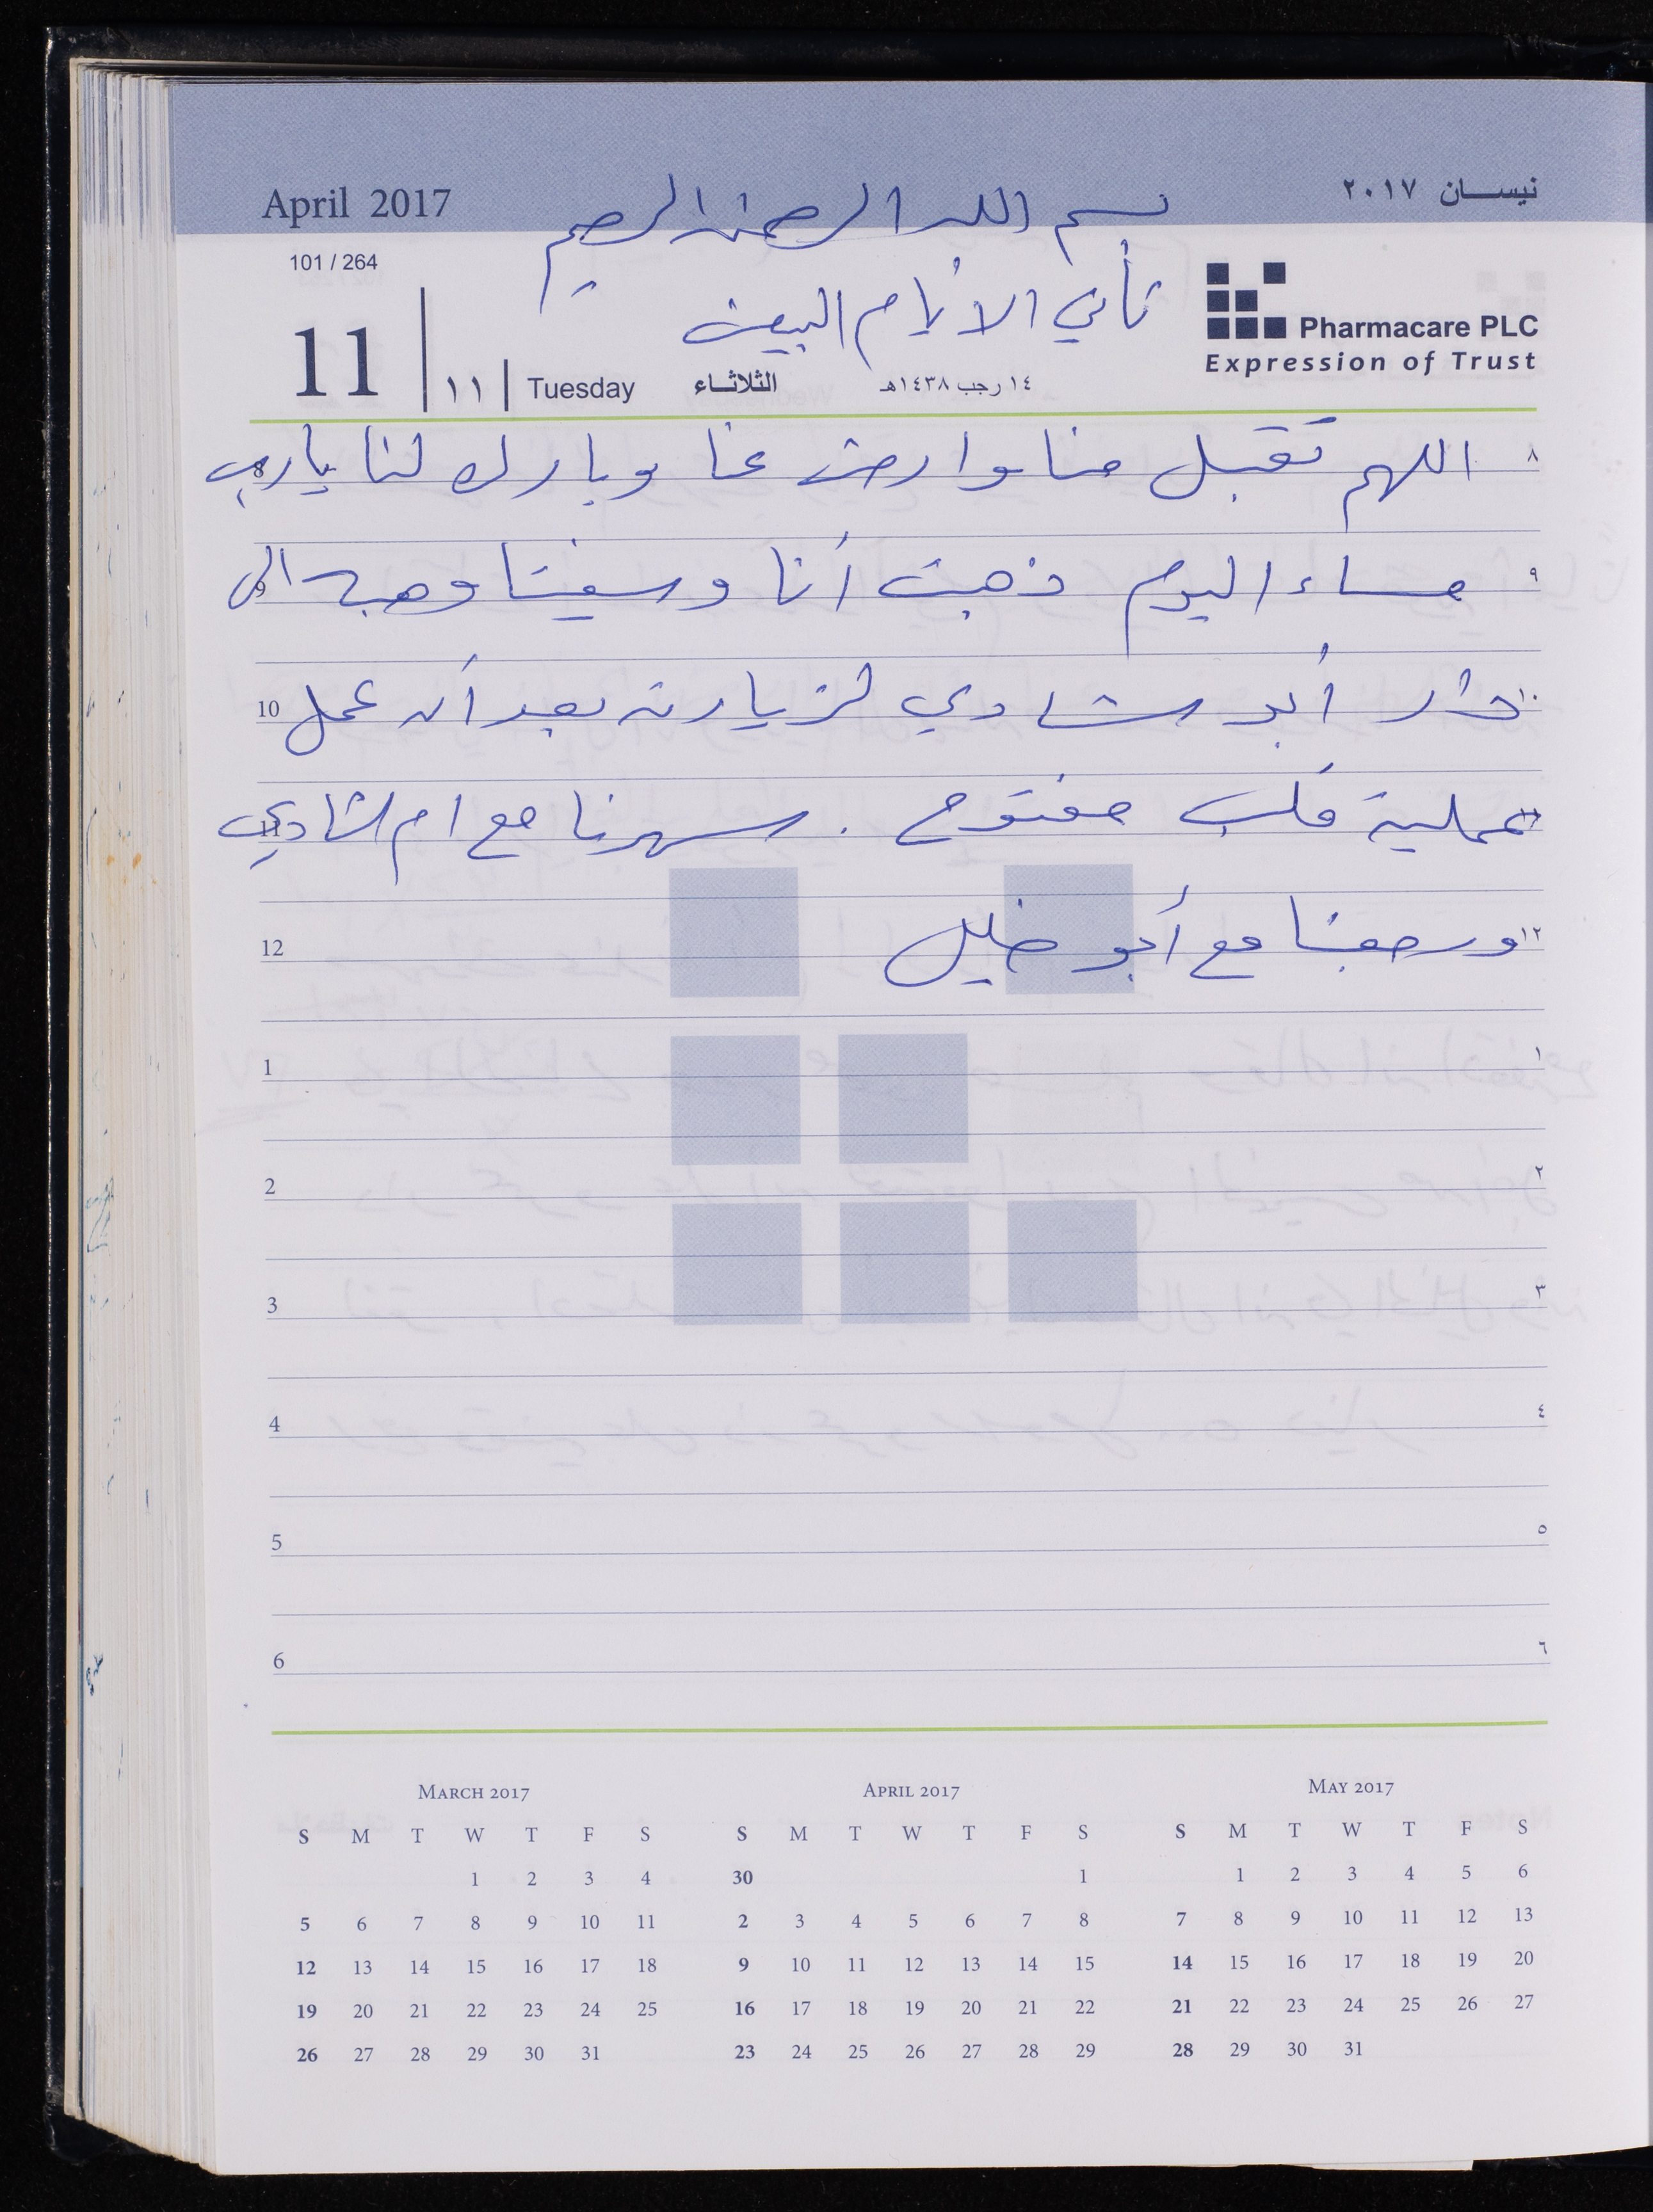 April 2017
نيسان ٢٠١٧
بسم الله الرحمن الرحيم
101 / 264
ثاني الأيام البيض
Pharmacare PLC
Expression of Trust
11 | ١١ | Tuesday الثلاثاء ١٤ رجب ١٤٣٨هـ
٨ اللهم تقبل منا وارض عنا وبارك لنا يا رب 8
٩ مساء اليوم ذهبت أنا وسفيتا وهبه الى 9
١٠ دار أبو شادي لزيارته بعد أن عمل 10
١١ عملية قلب مفتوح . سهرنا مع ام الشادي 11
١٢ ورجعنا مع أبو خليل 12
1 ١
2 ٢
3 ٣
4 ٤
5 ٥
6 ٦
MARCH 2017
S M T W T F S
1 2 3 4
5 6 7 8 9 10 11
12 13 14 15 16 17 18
19 20 21 22 23 24 25
26 27 28 29 30 31
APRIL 2017
S M T W T F S
30 1
2 3 4 5 6 7 8
9 10 11 12 13 14 15
16 17 18 19 20 21 22
23 24 25 26 27 28 29
MAY 2017
S M T W T F S
1 2 3 4 5 6
7 8 9 10 11 12 13
14 15 16 17 18 19 20
21 22 23 24 25 26 27
28 29 30 31